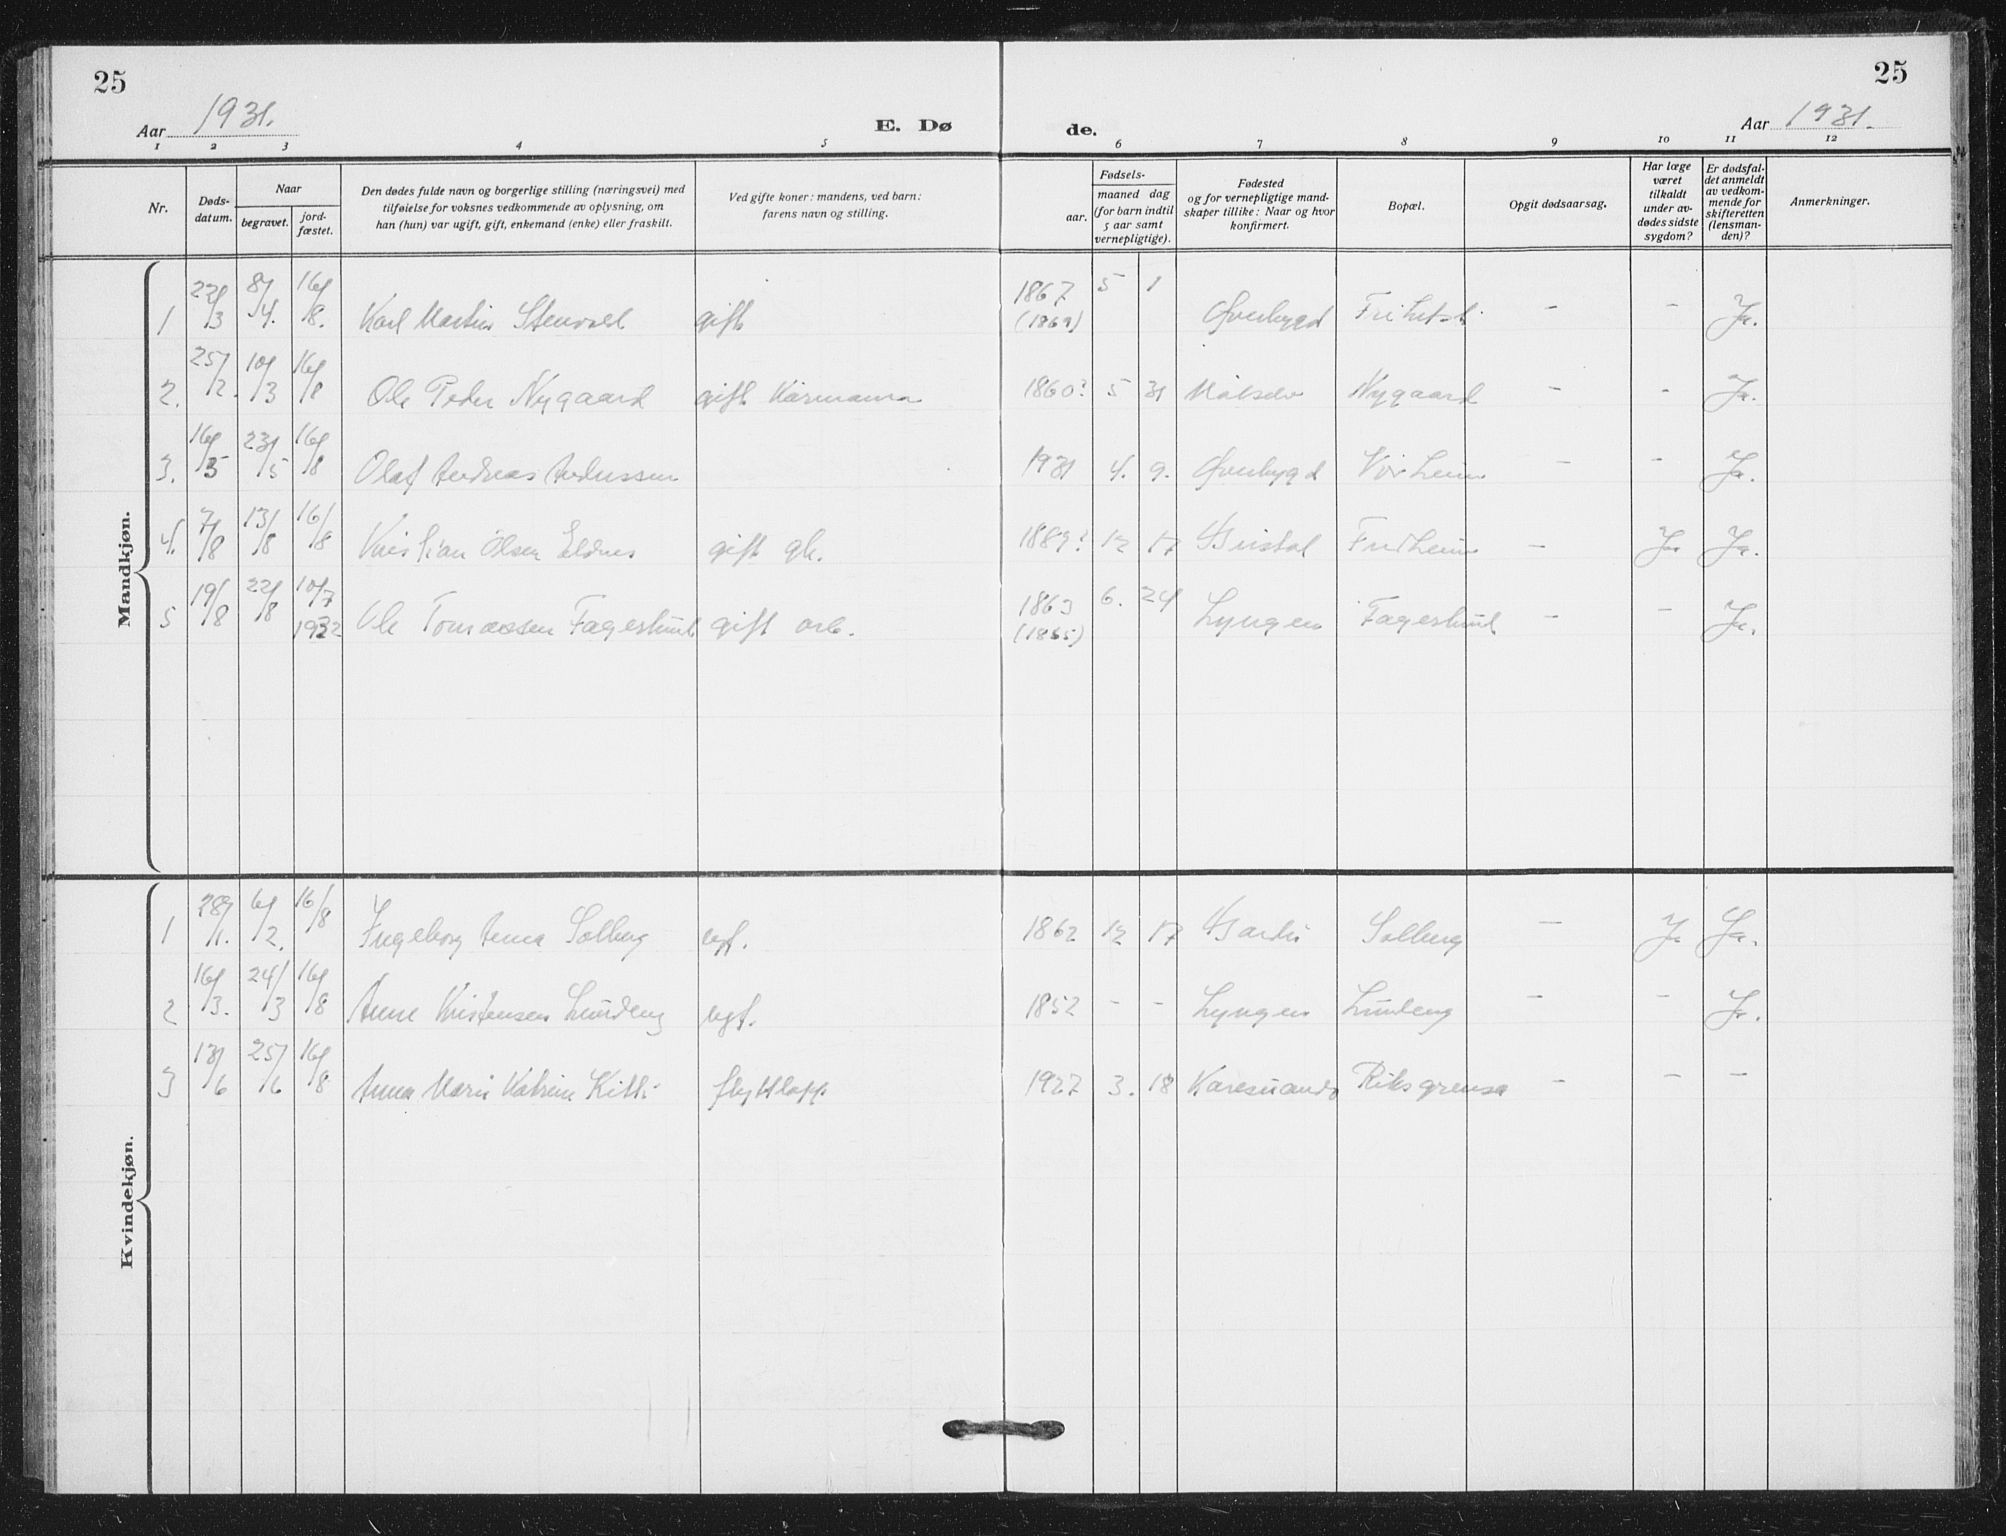 25
25
Aar 1931.
E. Dø
de.
Aar 1931.
1 2 3 4 5 6 7 8 9 10 11 12
Nr.
Døds-
datum.
Naar
begravet.
jord-
fæstet.
Den dødes fulde navn og borgerlige stilling (næringsvei) med
tilføielse for voksnes vedkommende av oplysning, om
han (hun) var ugift, gift, enkemand (enke) eller fraskilt.
Ved gifte koner: mandens, ved barn:
farens navn og stilling.
Fødsels-
aar.
maaned dag
(for barn indtil
5 aar samt
vernepligtige).
Fødested
og for vernepligtige mand-
skaper tillike: Naar og hvor
konfirmert.
Bopæl.
Opgit dødsaarsag.
Har læge
været
tilkaldt
under av-
dødes sidste
sygdom?
Er dødsfal-
det anmeldt
av vedkom-
mende for
skifteretten
(lensman-
den)?
Anmerkninger.
Mandkjøn.
1 22/3 8/4. 16/8. Karl Martin Stenvold gift 1867 (1869) 5 1 Øverbygd - - Ja.
2. 25/2. 10/3 16/8 Ole Peder Nygaard gift 1860? 5 31 Målselv Nygaard - - Ja.
3. 16/5 23/5 16/8 Olaf Andreas 1931 4. 9. Øverbygd - - Ja.
4. 7/8 13/8 16/8 Kristian Olsen Eldnes gift gb. 1889? 12 17 Fredheim - Ja Ja.
5 19/8 22/8 10/7 1932 Ole Tomassen Fagerlund gift arb. 1863 (1865) 6. 24 Lyngen Fagerlund - - Ja.
Kvindekjøn.
1 28/1. 6/2. 16/8 Ingeborg Anna Solberg ugf. 1862 12 17 Bardu Solberg - Ja Ja.
2 16/3. 24/3 16/8 Anne Kristensen Lundeng ugf. 1852 - - Lyngen Lundeng - - Ja.
3 13/6 25/6 16/8 Anna Marie Katrine Kitti flyttlapp. 1927 3. 18 Karesuando Riksgrensa - - -